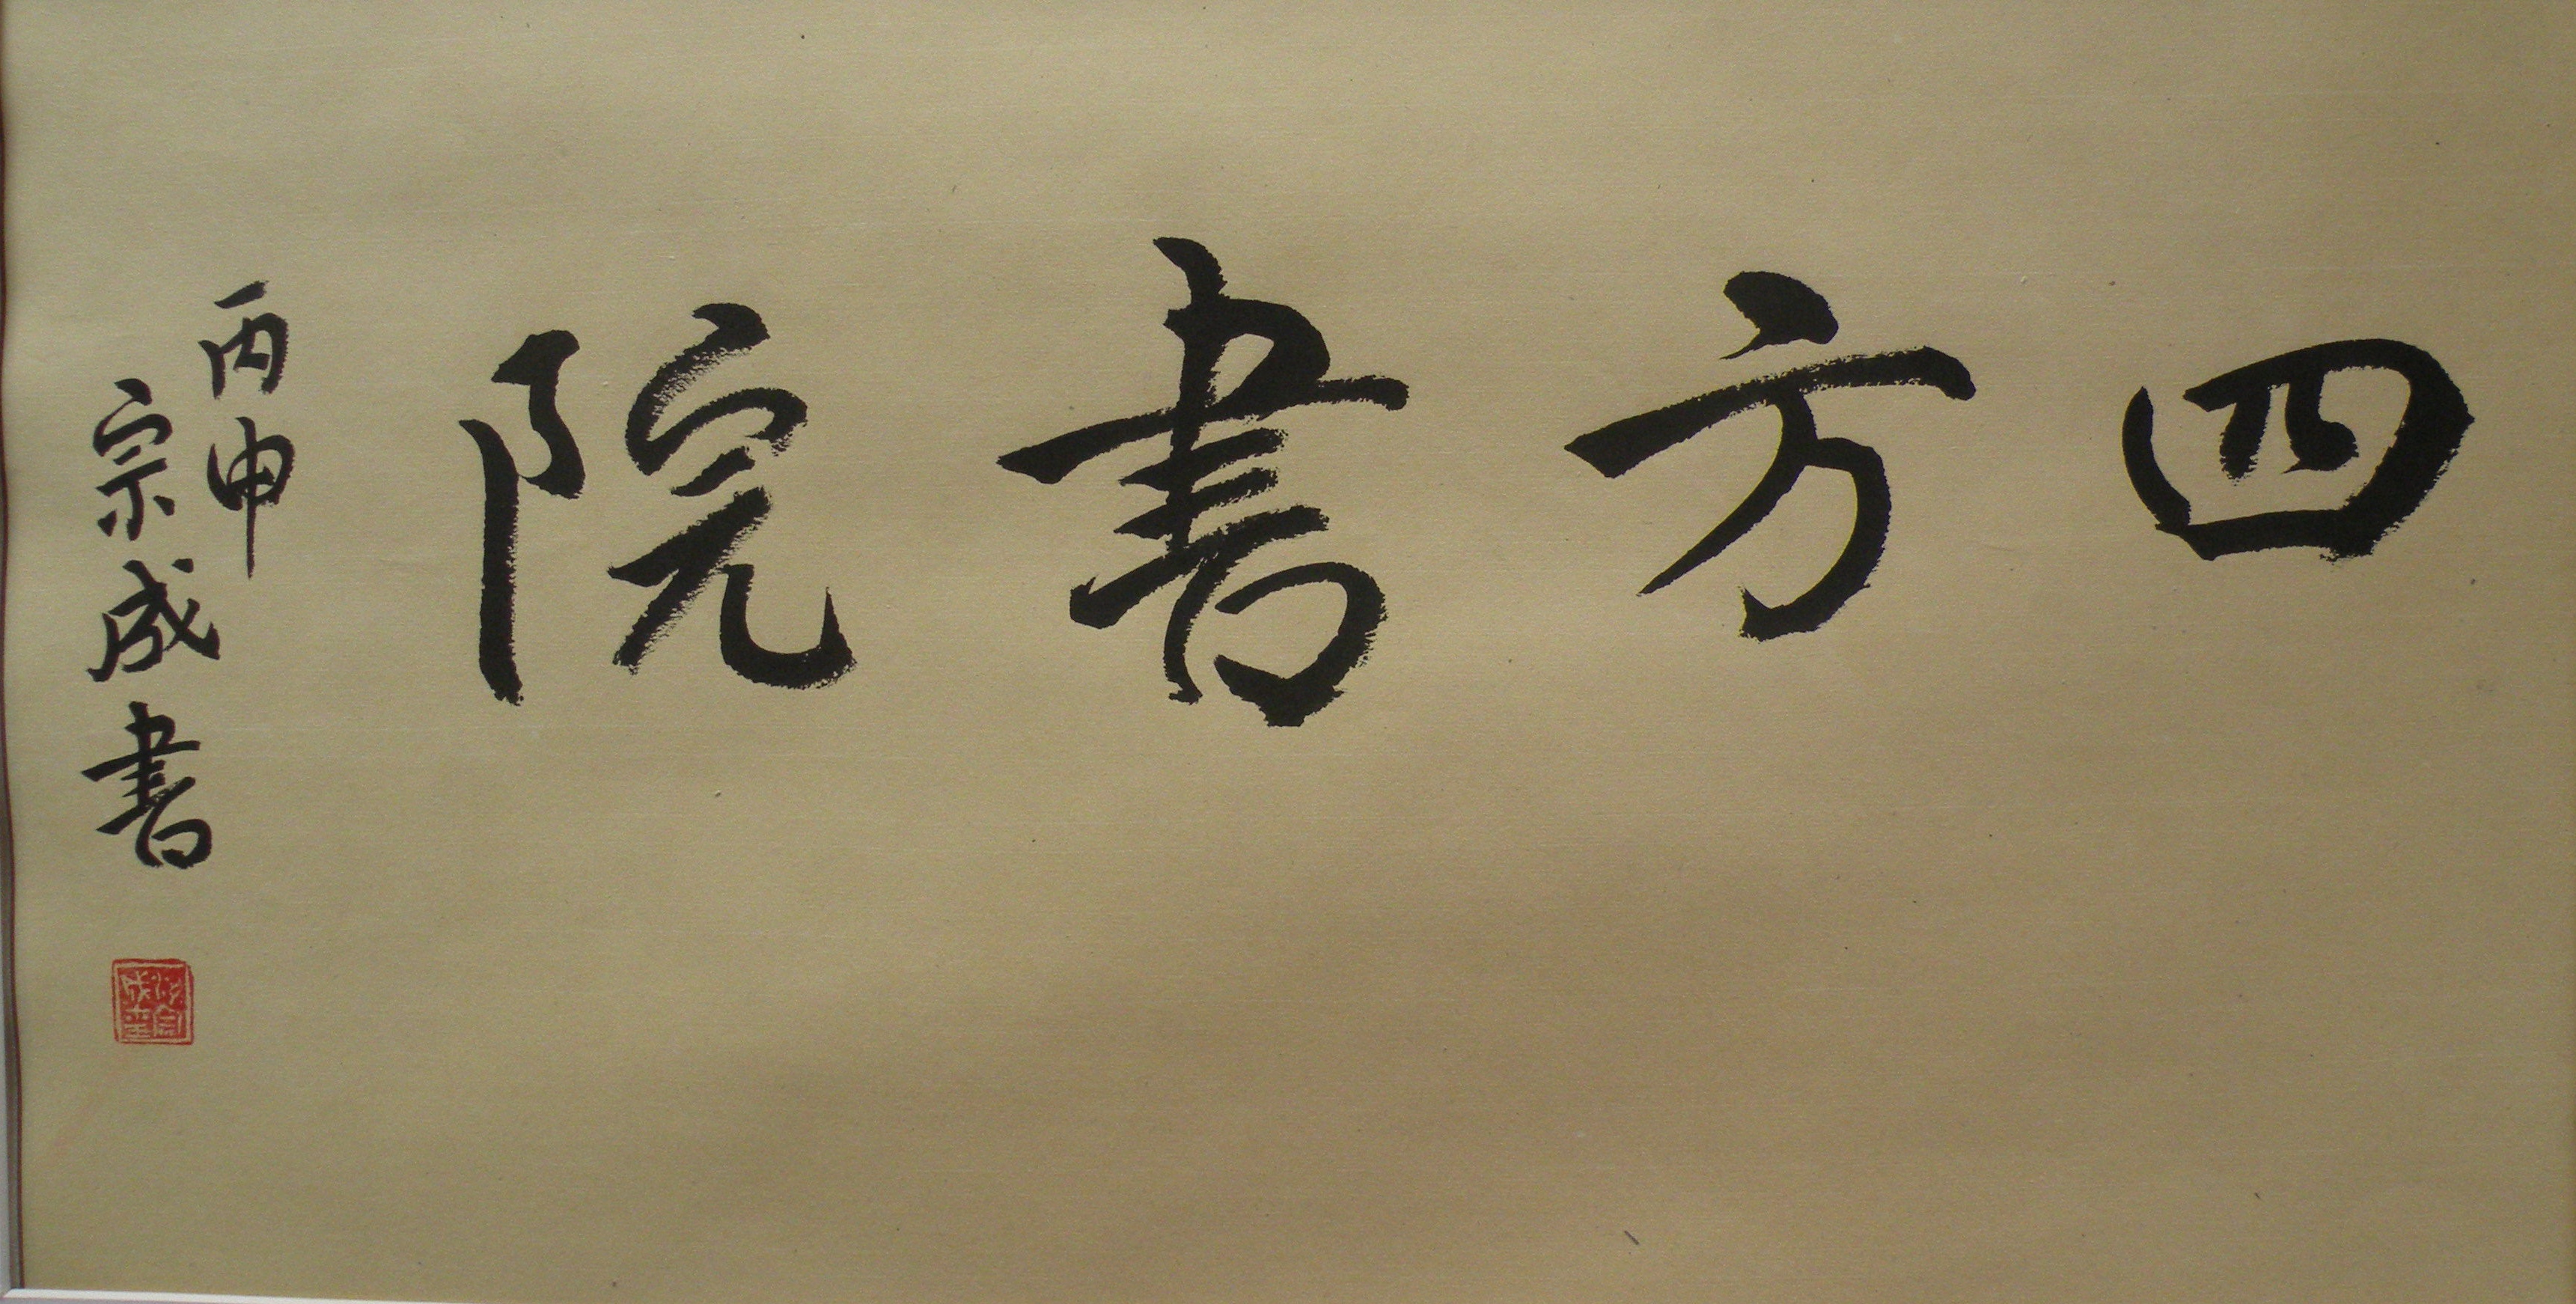 四方書院
丙申
宗成書